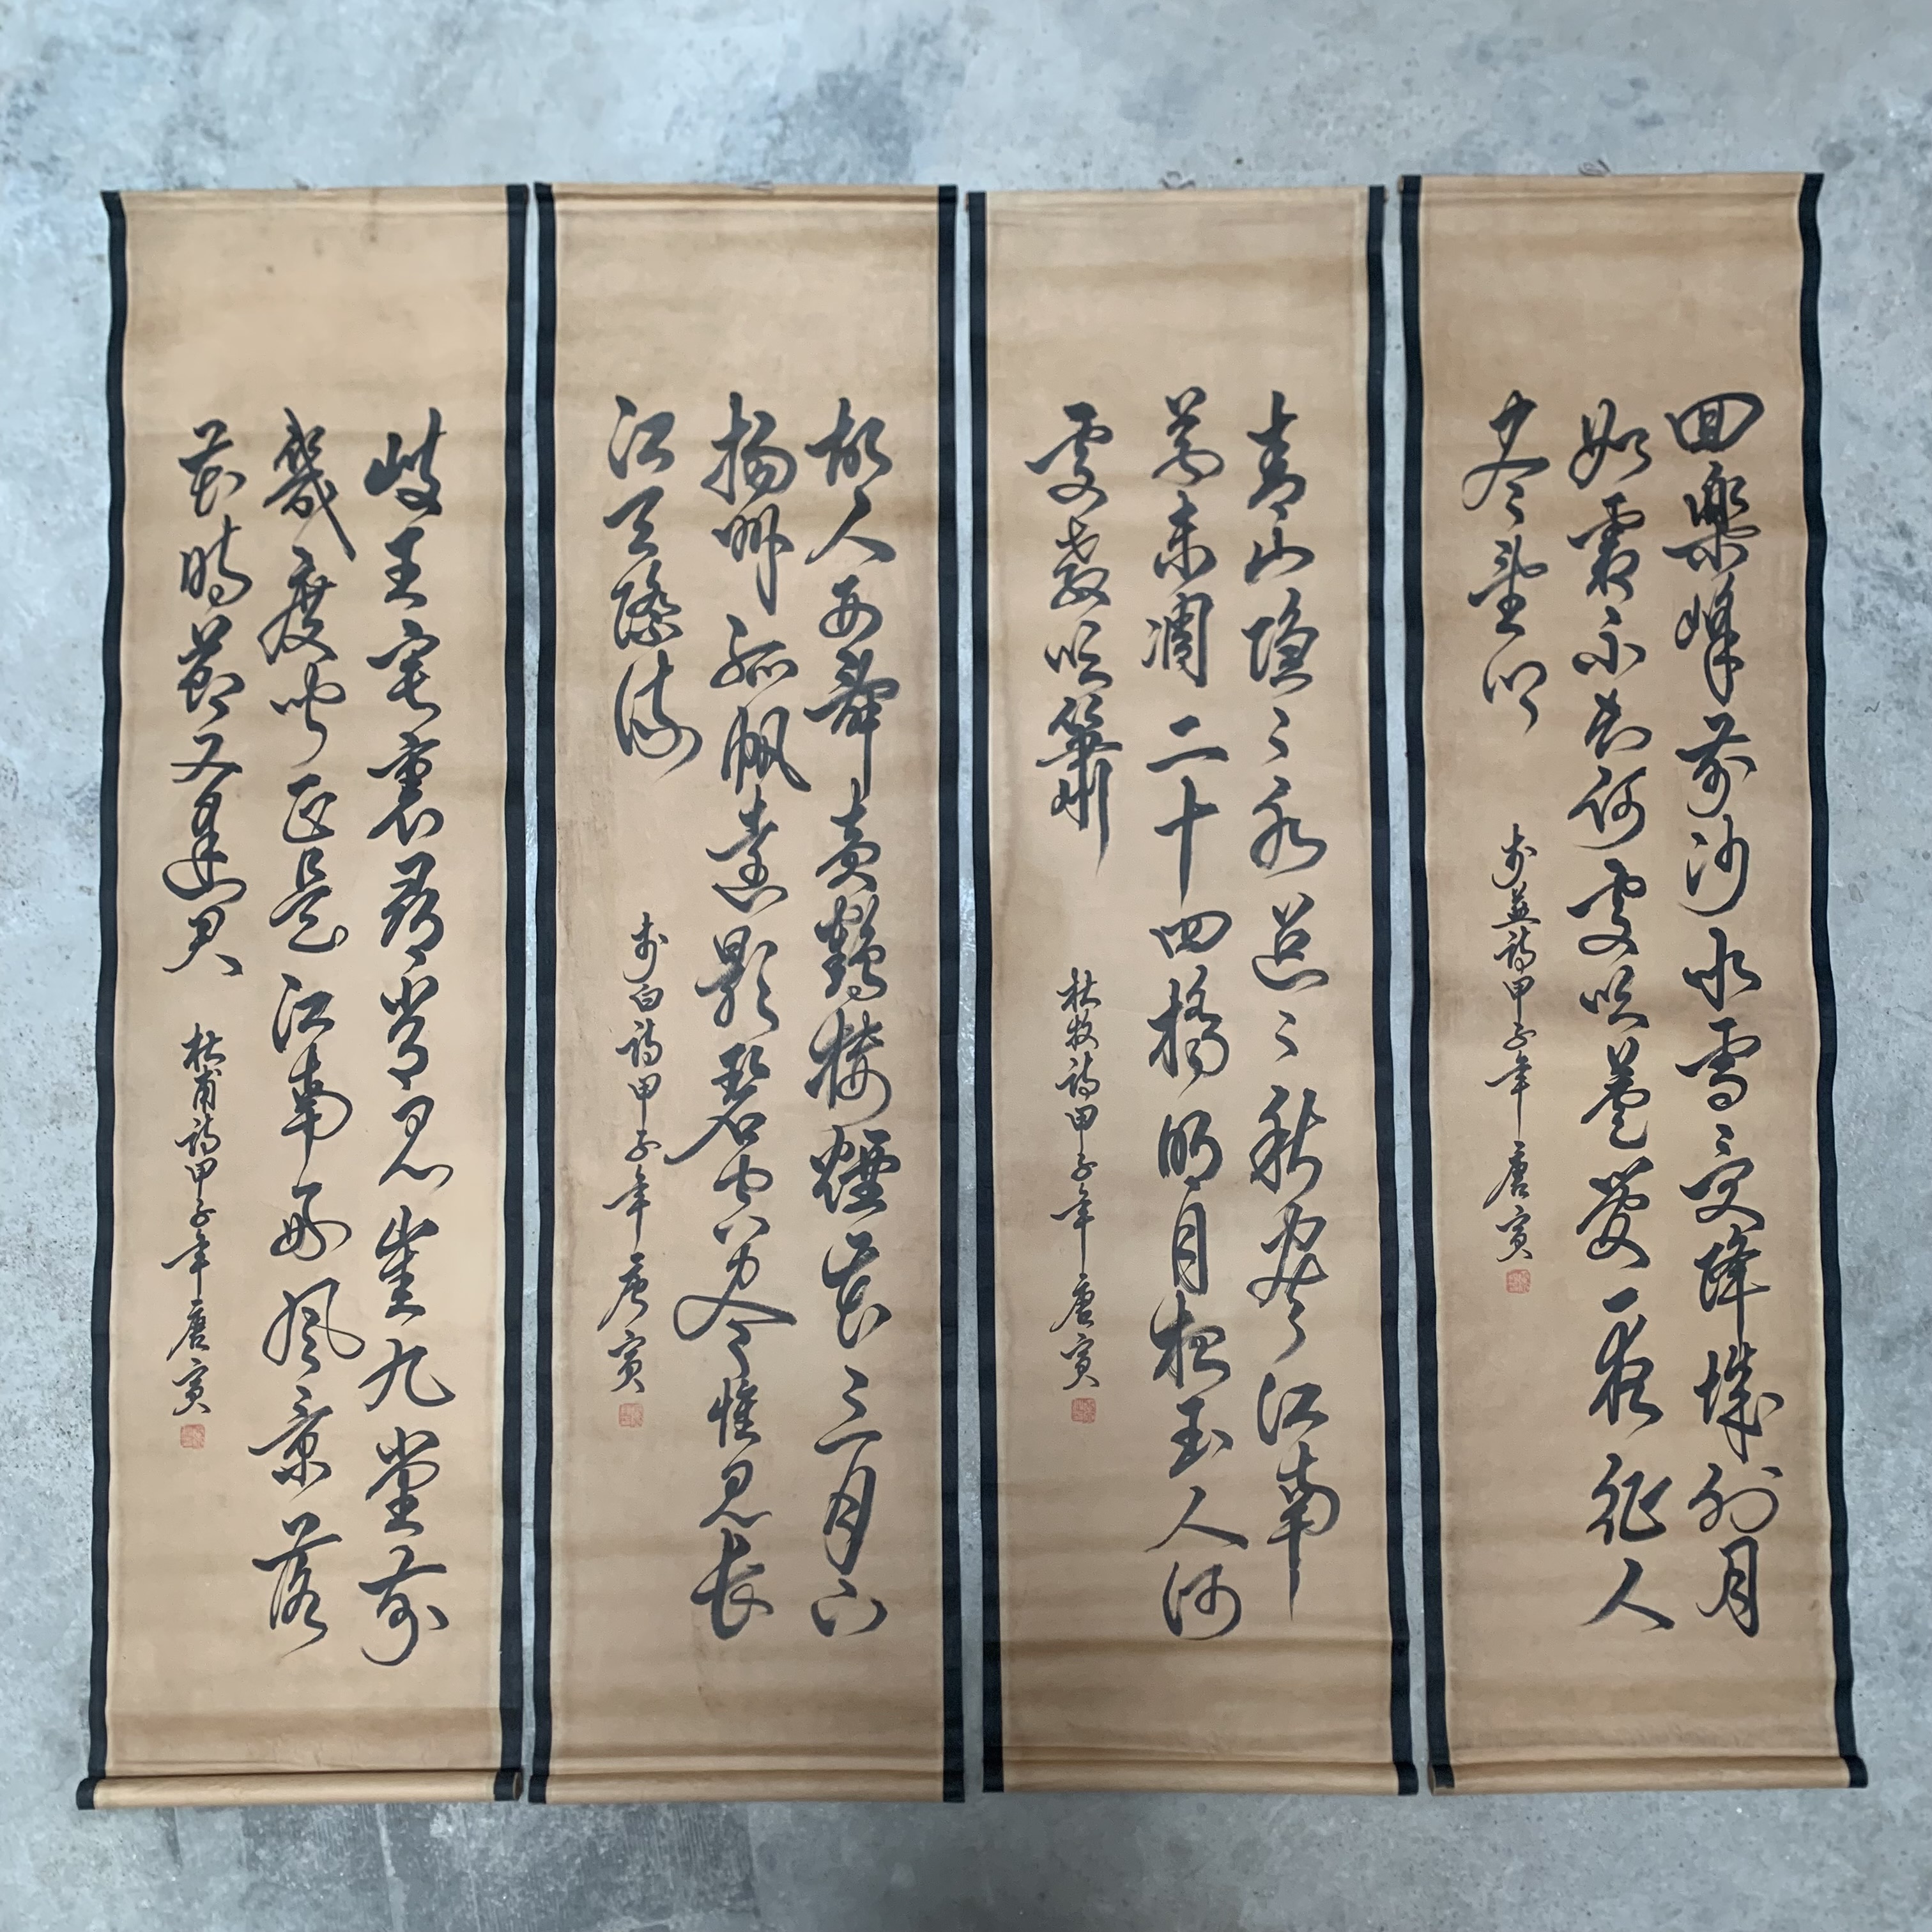 回樂峰前沙似雪受降城外月
如霜不知何處吹蘆管一夜征人
尽望鄉
李益詩甲子年唐寅
青山隱〻水迢〻秋盡江南
草未凋二十四橋明月夜玉人何
處教吹簫
杜牧詩甲子年唐寅
故人西辭黃鶴樓煙花三月下
揚州孤帆遠影碧空盡惟見長
江天際流
李白詩甲子年唐寅
岐王宅裏尋常見崔九堂前
幾度聞正是江南好風景落
花時節又逢君
杜甫詩甲子年唐寅